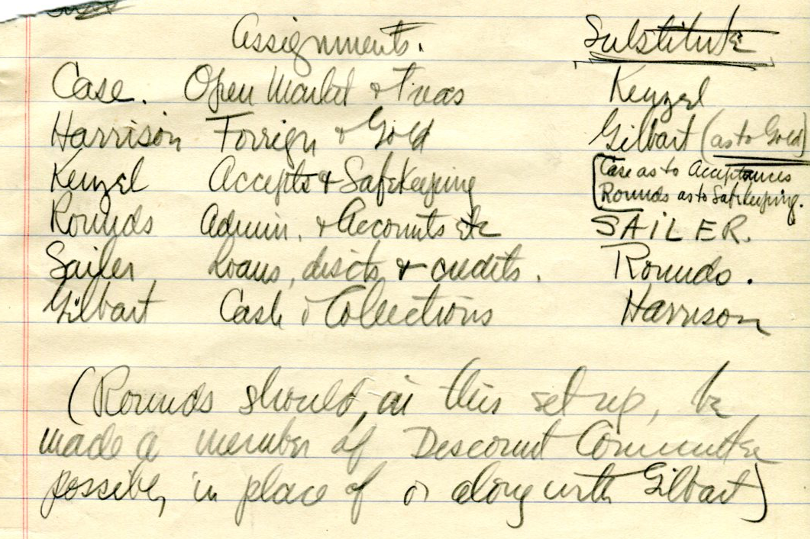 Assignments. Substitute
Case. Open Market & Treas Kenzel
Harrison Foreign & Gold Gilbart (as to Gold)
Kenzel Accepts & Safekeeping [Case as to Acceptances
Rounds as to Safekeeping.
Rounds Admin. & Accounts etc SAILER.
Sailer Loans, discts & credits. Rounds.
Gilbart Cash & Collections Harrison
(Rounds should, in this set up, be
made a member of Discount Committee
possibly in place of or along with Gilbart)